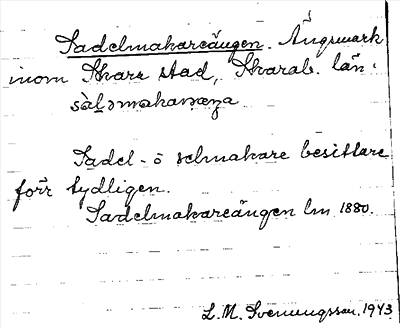 Sadelmakareängen. Ängsmark
inom Skara stad, Skarab. län.
Sadel- o selmakare besittare
förr tydligen.
Sadelmakareängen lm 1880.
L. M. Svenungsson. 1943